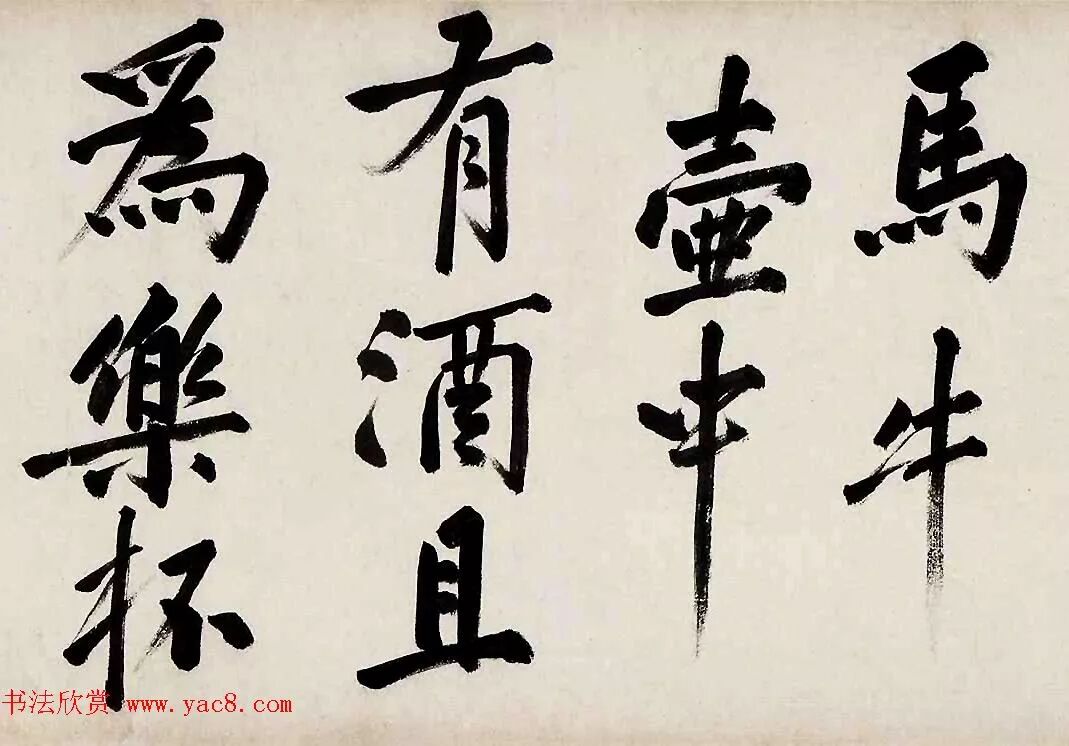 馬牛
壺中
有酒且
為樂杯
书法欣赏 www.yac8.com